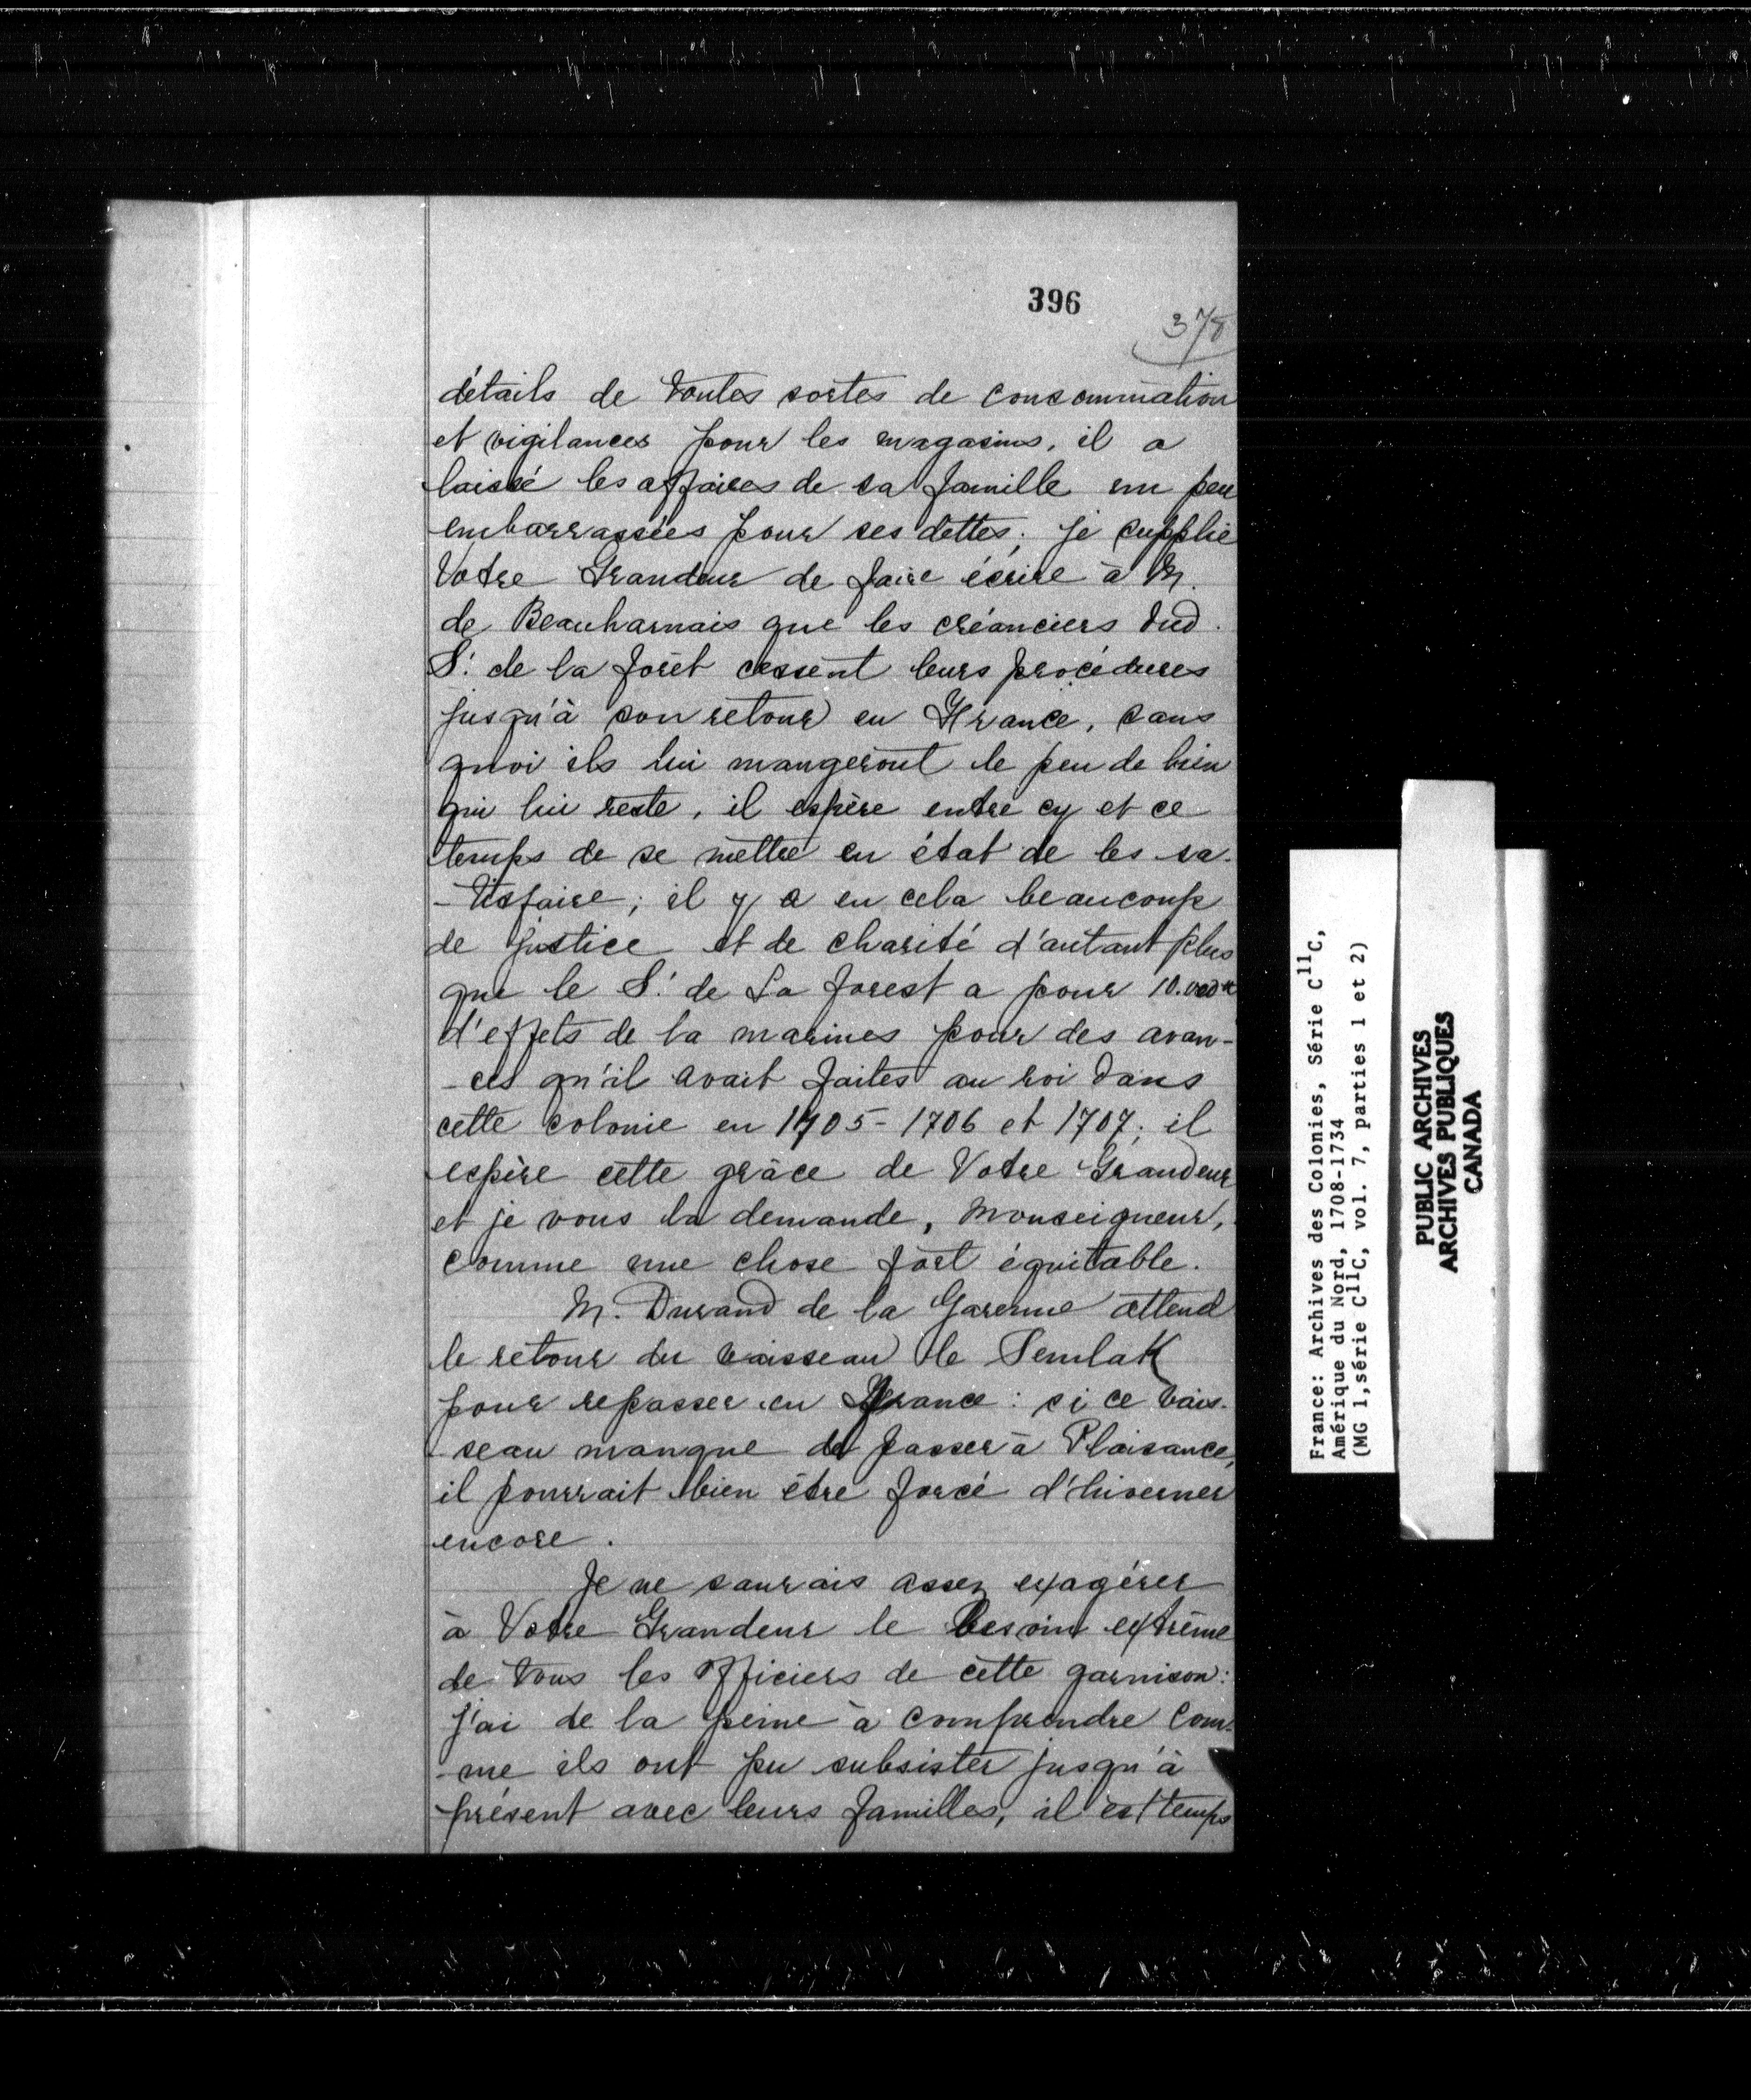 396
378
détails de toutes sortes de consommation
et vigilances pour les magasins, il a
laissé les affaires de sa famille un peu
embarrassées pour ses dettes; je supplie
Votre Grandeur de faire écrire à M.
de Beauharnais que les créanciers dud.
S.r de la forêt cessent leurs procédures
jusqu'à son retour en France, sans
quoi ils lui mangeront le peu de bien
qui lui reste, il espère entre cy et ce
temps de se mettre en état de les sa-
-tisfaire; il y a en cela beaucoup
de justice et de charité d'autant plus
que le S.r de La forest a pour 10.000#
d'effets de la marines pour des avan-
-ces qu'il avait faites au roi dans
cette colonie en 1705 - 1706 et 1707; il
espère cette grâce de Votre Grandeur
et je vous la demande, Monseigneur,
comme une chose fort équitable.
M. Durand de la Garenne attend
le retour du vaisseau le Semlak
pour repasser en France: si ce vais-
-seau manque de passer à Plaisance,
il pourrait bien être forcé d'hiverner
encore.
Je ne saurais assez exagérer
à Votre Grandeur le besoin extrême
de tous les officiers de cette garnison:
j'ai de la peine à comprendre com-
-me ils ont pu subsister jusqu'à
présent avec leurs familles, il est temps
France: Archives des Colonies, Série C11C,
Amérique du Nord, 1708-1734
(MG 1, série C11C, vol. 7, parties 1 et 2)
PUBLIC ARCHIVES
ARCHIVES PUBLIQUES
CANADA